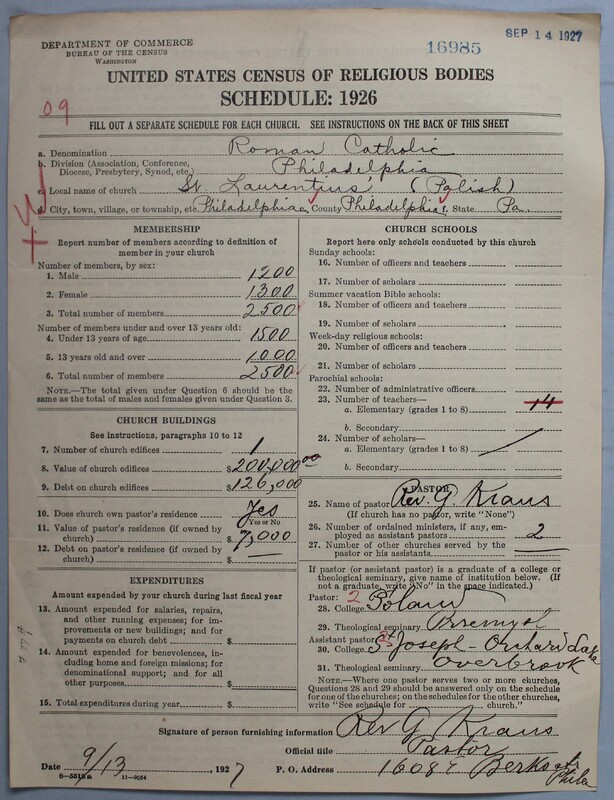 DEPARTMENT OF COMMERCE
BUREAU OF THE CENSUS
WASHINGTON
16985
SEP 14 1927
UNITED STATES CENSUS OF RELIGIOUS BODIES
SCHEDULE: 1926
09
FILL OUT A SEPARATE SCHEDULE FOR EACH CHURCH. SEE INSTRUCTIONS ON THE BACK OF THIS SHEET
a. Denomination Roman Catholic
b. Division (Association, Conference, Diocese, Presbytery, Synod, etc.) Philadelphia
c. Local name of church St. Laurentius' (Polish)
d. City, town, village, or township, etc. Philadelphia County Philadelphia State Pa.
MEMBERSHIP
Report number of members according to definition of
member in your church
Number of members, by sex:
1. Male 1200
2. Female 1300
3. Total number of members 2500
Number of members under and over 13 years old:
4. Under 13 years of age 1500
5. 13 years old and over 1000
6. Total number of members 2500
NOTE.—The total given under Question 6 should be the
same as the total of males and females given under Question 3.
CHURCH BUILDINGS
See instructions, paragraphs 10 to 12
7. Number of church edifices 1
8. Value of church edifices $200,000.00
9. Debt on church edifices $126,000
10. Does church own pastor's residence Yes
Yes or No
11. Value of pastor's residence (if owned by
church) $7,000
12. Debt on pastor's residence (if owned by
church) $ —
EXPENDITURES
Amount expended by your church during last fiscal year
13. Amount expended for salaries, repairs,
and other running expenses; for im-
provements or new buildings; and for
payments on church debt $
14. Amount expended for benevolences, in-
cluding home and foreign missions; for
denominational support; and for all
other purposes $
15. Total expenditures during year $
CHURCH SCHOOLS
Report here only schools conducted by this church
Sunday schools:
16. Number of officers and teachers
17. Number of scholars
Summer vacation Bible schools:
18. Number of officers and teachers
19. Number of scholars
Week-day religious schools:
20. Number of officers and teachers
21. Number of scholars
Parochial schools:
22. Number of administrative officers
23. Number of teachers—
a. Elementary (grades 1 to 8) 14
b. Secondary
24. Number of scholars—
a. Elementary (grades 1 to 8)
b. Secondary
PASTOR
25. Name of pastor Rev. G. Kraus
(If church has no pastor, write "None")
26. Number of ordained ministers, if any, em-
ployed as assistant pastors 2
27. Number of other churches served by the
pastor or his assistants —
If pastor (or assistant pastor) is a graduate of a college or
theological seminary, give name of institution below. (If
not a graduate, write "No" in the space indicated.)
Pastor: 2
28. College Poland
29. Theological seminary Przemysl
Assistant pastor:
30. College St Joseph - Orchard Lake
31. Theological seminary Overbrook
NOTE.—Where one pastor serves two or more churches,
Questions 28 and 29 should be answered only on the schedule
for one of the churches; on the schedules for the other churches,
write "See schedule for church."
Signature of person furnishing information Rev G. Kraus
Official title Pastor
Date 9/13, 1927 P. O. Address 1608 E Berks str Phila
8-5518a 11-9054